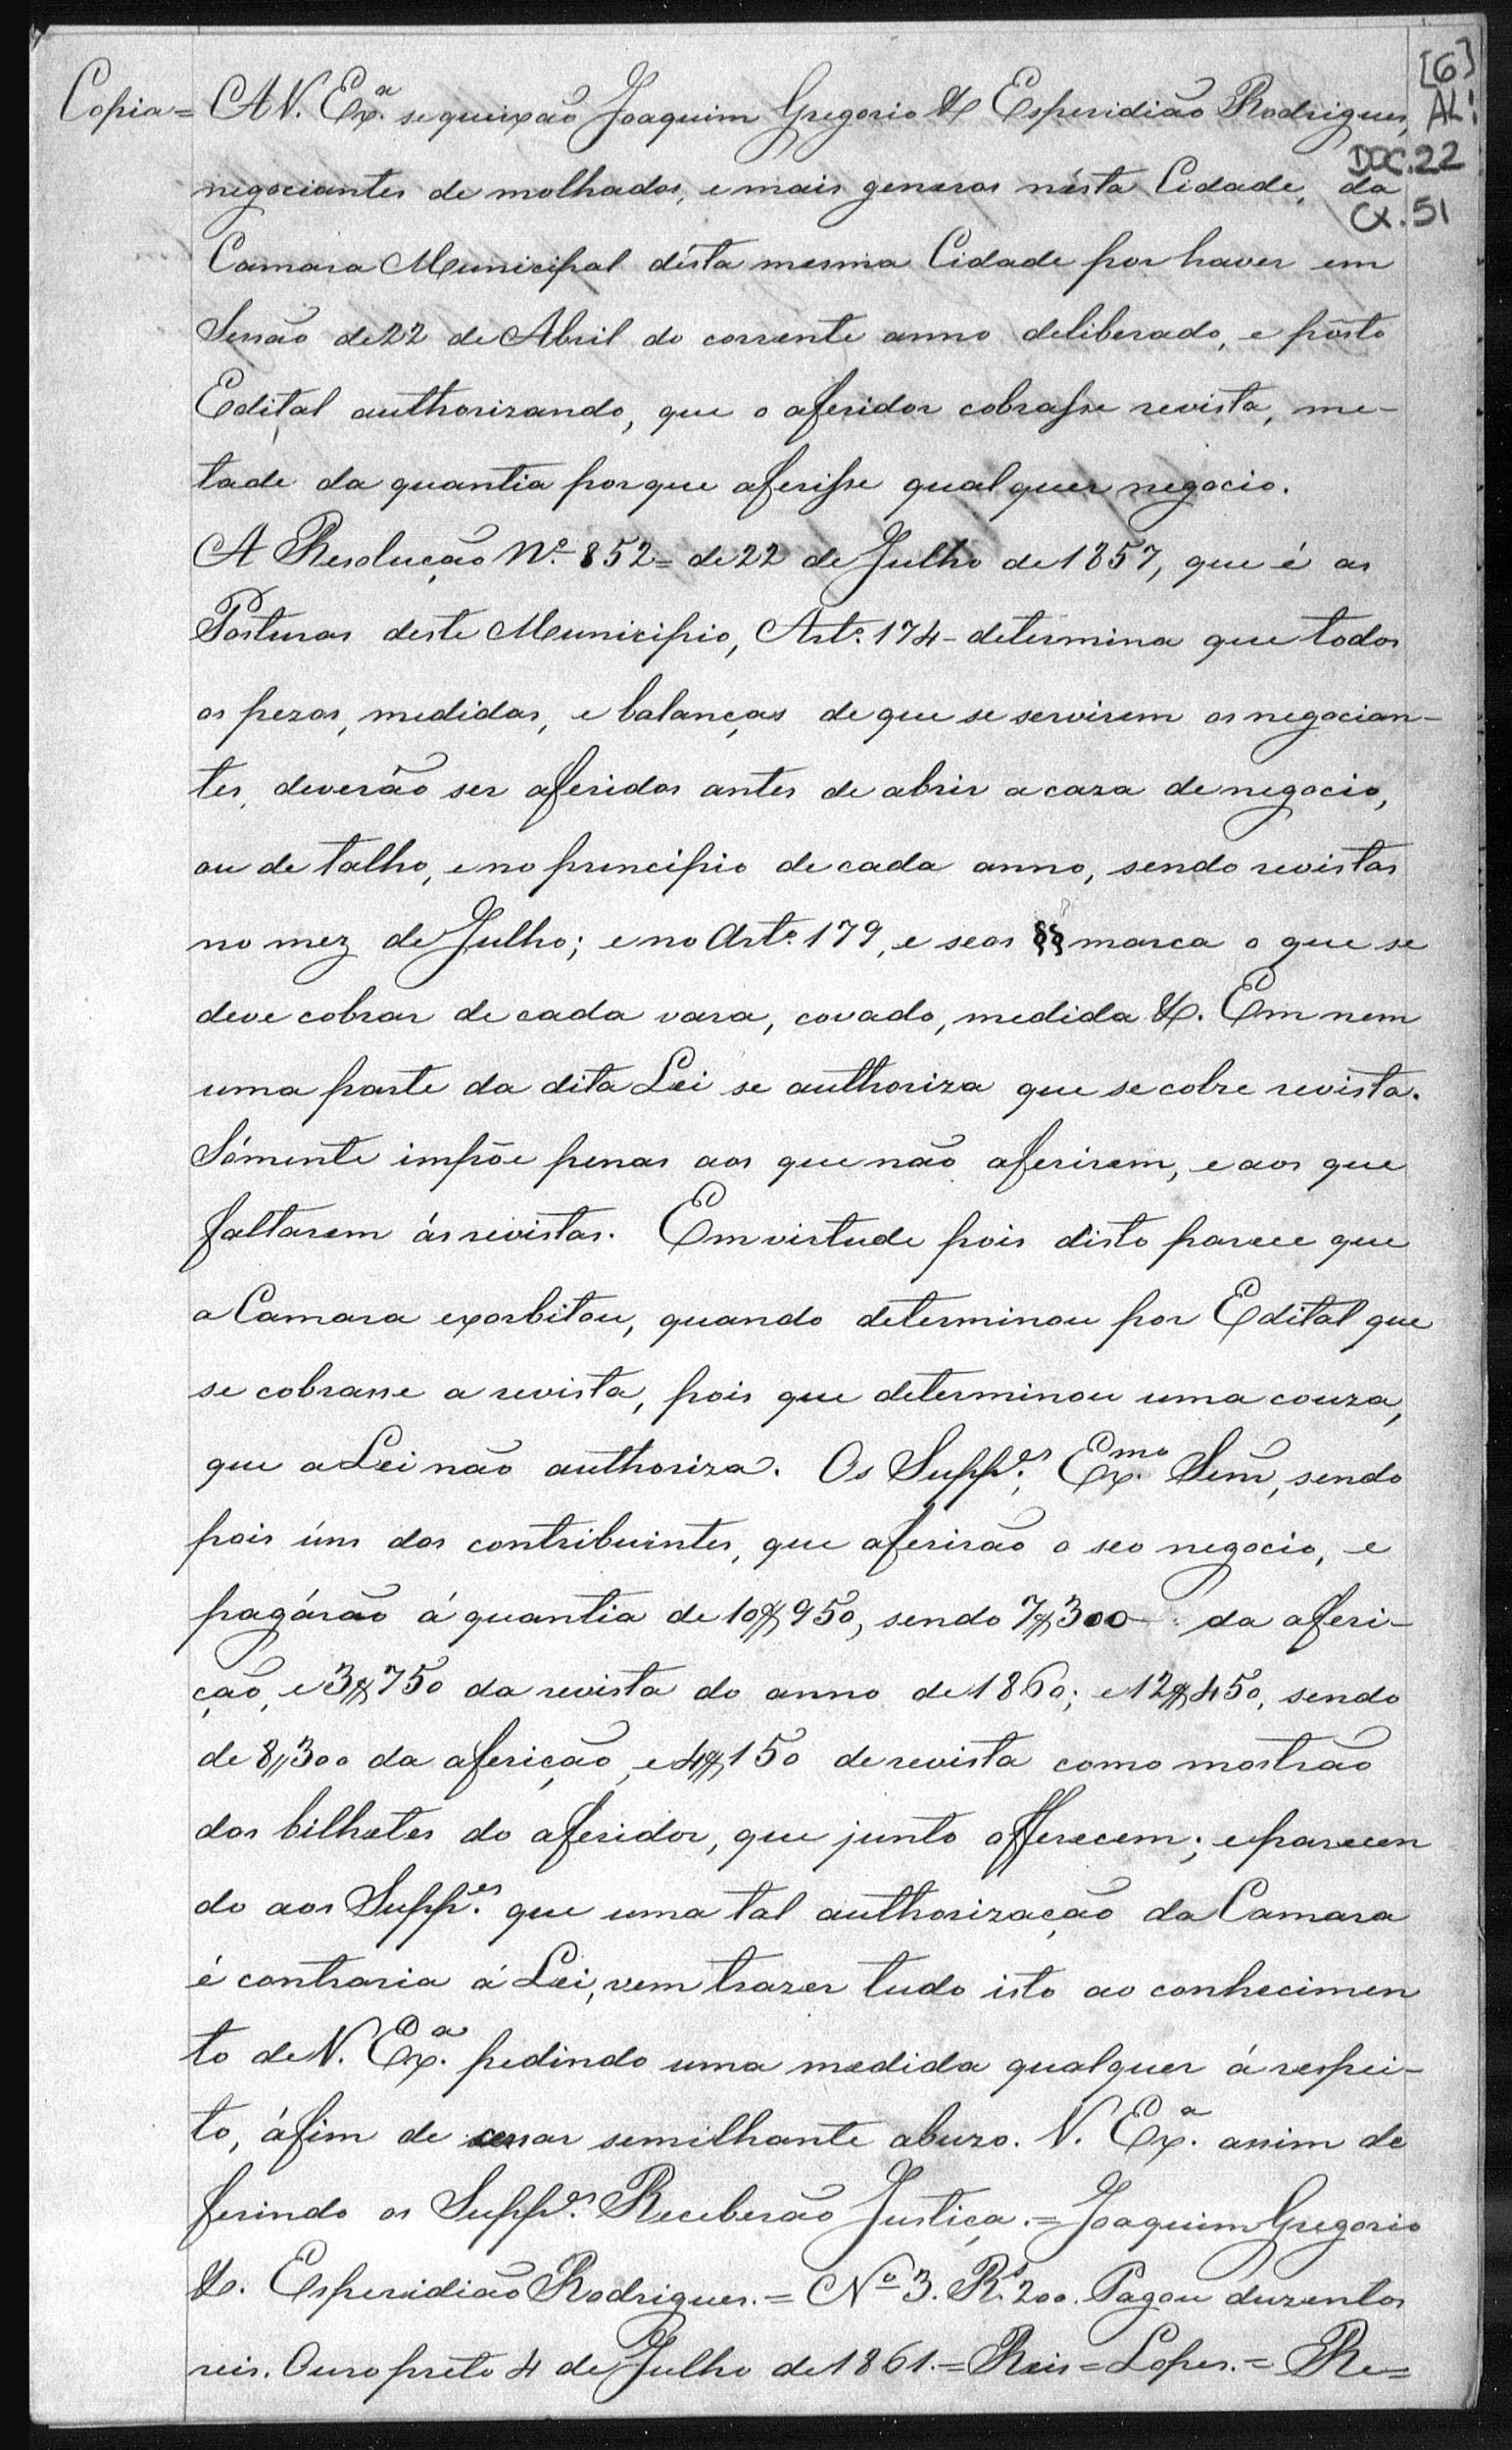 [6]
AL!
DOC.22
CX.51
Copia = A V. Ex.ª se queixão Joaquim Gregorio & Esperidião Rodrigues,
negociantes de molhados, e mais generos nésta Cidade, da
Camara Municipal désta mesma Cidade por haver em
Sessão de 22 de Abril do corrente anno deliberado, e pôsto
Edital authorizando, que o aferidor cobrasse revista, me-
tade da quantia porque aferisse qualquer negocio.
A Resolução Nº 852 = de 22 de Julho de 1857, que é as
Posturas deste Municipio, Artº 174 - determina que todos
os pezos, medidas, e balanças de que se servirem os negocian-
tes, deverão ser aferidos antes de abrir a caza de negocio,
ou de talho, e no principio de cada anno, sendo revistos
no mez de Julho; e no Artº 179, e seos §§ marca o que se
deve cobrar de cada vara, covado, medida &. Em nem
uma parte da dita Lei se authoriza que se cobre revista.
Sómente impõe penas aos que não aferirem, e aos que
faltarem ás revistas. Em virtude pois disto parece que
a Camara exorbitou, quando determinou por Edital que
se cobrasse a revista, pois que determinou uma couza,
que a Lei não authoriza. Os Supp.es, Ex.mo Senr̃, sendo
pois úns dos contribuintes, que aferirão o seo negocio, e
pagárão á quantia de 10$950, sendo 7$300 - da aferi-
ção, e 3$750 da revista do anno de 1860; e 12$450, sendo
de 8$300 da aferição, e 4$150 de revista como mostrão
dos bilhetes do aferidor, que junto offerecem; e parecen
do aos Supp.es que uma tal authorização da Camara
é contraria á Lei, vem trazer tudo isto ao conhecimen
to de V. Ex.ª pedindo uma medida qualquer á respei-
to, áfim de cessar semilhante abuzo. V. Ex.ª assim de
ferindo os Supp.es Receberão Justiça. = Joaquim Gregorio
&. Esperidião Rodrigues. = Nº 3. Rs 200. Pagou duzentos
reis. Ouro preto 4 de Julho de 1861. = Reis = Lopes. = Re=